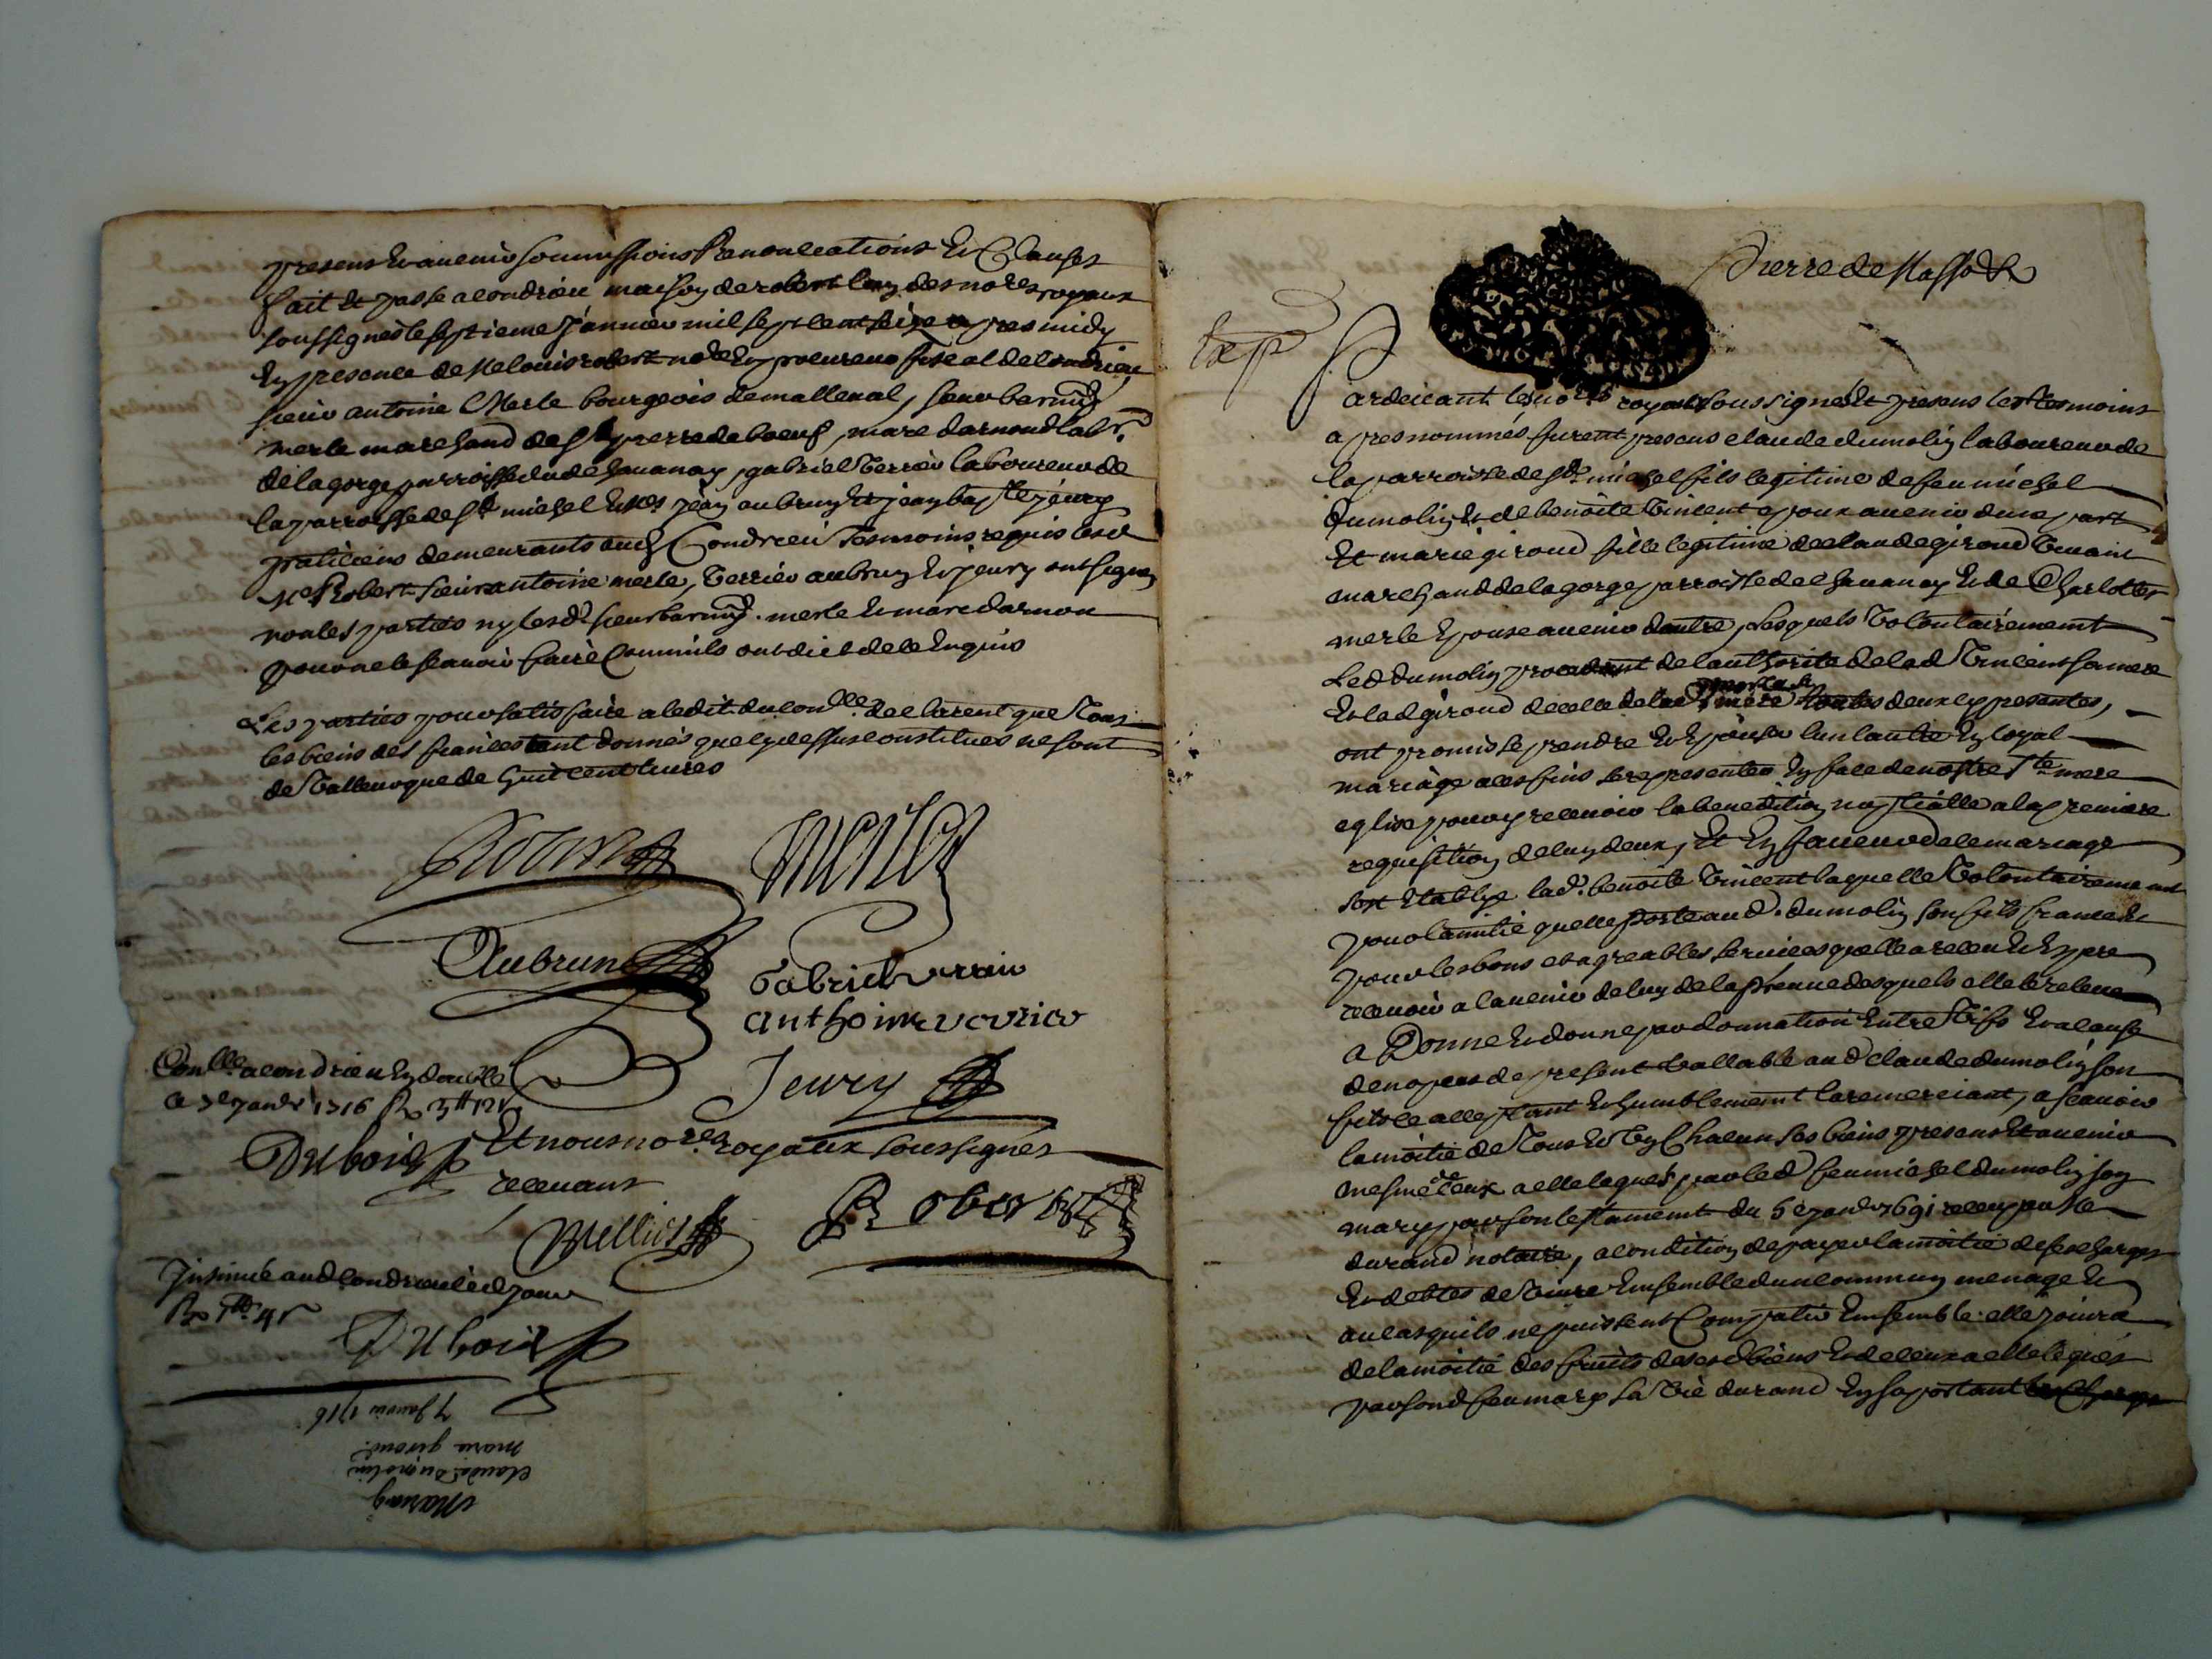 presens et avenir soumissions Renonceations Et Clauses
fait et passe a condrieu maison de robert lung des no.res royaux
soussignes le septieme janvier mil sept cent seize apres midy
En presence de Me louis robert no.re Et procureur fiscal de condrieu
sieur antoine Merle bourgeois de malleval, sieur barmy
merle marchand de St pierre de boeuf, marc darnoud lab.r
de la gorge parroisse dud chavanay, gabriel Verrier laboureur de
la parroisse de St michel Et Mes jean aubrun Et jean bap.te jeury
praticiens demeurants aud Condrieu Tesmoins requis lesd
Me Robert sieur antoine merle, Verrier aubrun Et jeury ont signes
non les parties ny lesd.s sieur barmy merle Et marc darnon
pour ne le scavoir faire Comm'ils ont dict de ce Enquis
Les parties pour satisfaire a ledit du con.lle declarent que Tous
les biens des fiances tant donnés que cy dessus constitues ne sont
de Valleur que de huit cent livres
Robert merle
Aubrun gabriel verrier
anthoine verrier
Jeury
Con.lle a condrieu En double
ce 7e janv.r 1716 R 3tt 12s
Dubois
Et nous no.res royaux soussignes
recevant
Mellier Robert
Insinué aud condrieu led jour
Dubois
7 Janvier 1716
marie giroud
claude Dumolin
Mariag
Pierre de Masso &
Exp P
ardevant les no.res royaux soussignés Et presens les Tesmoins
apres nommés furent presens claude dumolin laboureur de
la parroisse de St michel fils legitime de feu michel
dumolin Et de benoite Vincent epoux avenir dune part
Et marie giroud fille legitime de claude giroud Vivant
marchand de la gorge parroisse de chavanay Et de Charlotte
merle Epouse avenir dautre, Lesquels Volontairement
Led dumolin procedant de l'authorité de lad Vincent sa mere
Et lad giroud de celle de lad merle sa mere toutes deux cy presentes,
ont promis se prendre Et Epouser lun lautre En loyal
mariage a ces fins se representer En face de nostre Ste mere
eglise pour y recevoir la benedition nuptialle a la premiere
requisition de luy deux, Et En faveur de ce mariage
sest Etablye lad. benoite Vincent laquelle Volontairement
pour lamitié quelle porte aud. dumolin son fils fiance Et
pour les bons et agreables services quelle a receu Et Espere
recevoir a lavenir de luy de la preuve desquels elle le releve
a Donne Et donne par donnation Entre Vifs Et a cause
de nopces de present Vallable aud claude dumolin son
fils ce acceptant Et humblement la remerciant, a scavoir
la moitie de Tous Et Un Chacun ses biens presens Et avenir
mesme de ceux a elle legués par led feu michel dumolin son
mary par son testament du 6e janv.r 1691 receu par Me
durand notaire, a condition de payer la moitié de ses charges
Et debtes de Vivre Ensemble dun commun menage Et
au cas quils ne puissent Compatir Ensemble elle jouira
de la moitié des fruits de sesd biens Et de ceux a elle legués
par sond feu mary sa Vie durand En suportant les Charges